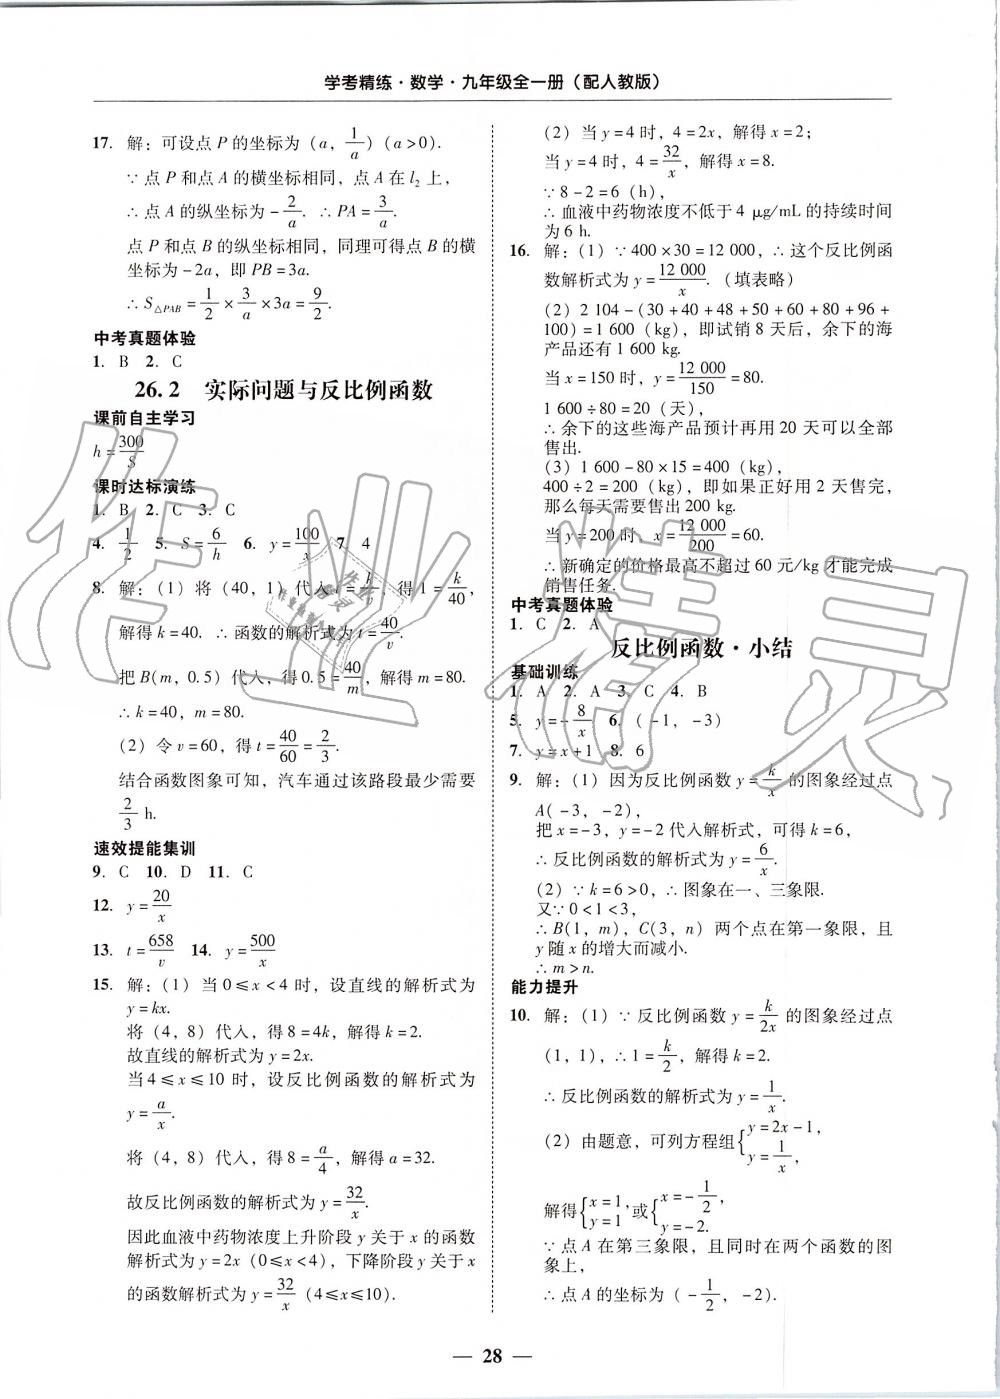 学考精练·数学·九年级全一册（配人教版）
17. 解：可设点 P 的坐标为（a，1/a）（a＞0）.
∵点 P 和点 A 的横坐标相同，点 A 在 l₂ 上，
∴点 A 的纵坐标为－2/a. ∴PA＝3/a.
点 P 和点 B 的纵坐标相同，同理可得点 B 的横
坐标为－2a，即 PB＝3a.
∴S△PAB＝1/2×3/a×3a＝9/2.
中考真题体验
1. B 2. C
26.2 实际问题与反比例函数
课前自主学习
h＝300/S
课时达标演练
1. B 2. C 3. C
4. 1/2 5. S＝6/h 6. y＝100/x 7. 4
8. 解：（1）将（40，1）代入 t＝k/v，得 1＝k/40，
解得 k＝40. ∴函数的解析式为 t＝40/v.
把 B(m，0.5）代入，得 0.5＝40/m，解得 m＝80.
∴k＝40，m＝80.
（2）令 v＝60，得 t＝40/60＝2/3.
结合函数图象可知，汽车通过该路段最少需要
2/3 h.
速效提能集训
9. C 10. D 11. C
12. y＝20/x
13. t＝658/v 14. y＝500/x
15. 解：（1）当 0≤x＜4 时，设直线的解析式为
y＝kx.
将（4，8）代入，得 8＝4k，解得 k＝2.
故直线的解析式为 y＝2x.
当 4≤x≤10 时，设反比例函数的解析式为
y＝a/x.
将（4，8）代入，得 8＝a/4，解得 a＝32.
故反比例函数的解析式为 y＝32/x.
因此血液中药物浓度上升阶段 y 关于 x 的函数
解析式为 y＝2x（0≤x＜4），下降阶段 y 关于 x
的函数解析式为 y＝32/x（4≤x≤10）.
（2）当 y＝4 时，4＝2x，解得 x＝2；
当 y＝4 时，4＝32/x，解得 x＝8.
∵8－2＝6（h），
∴血液中药物浓度不低于 4 μg/mL 的持续时间
为 6 h.
16. 解：（1）∵400×30＝12 000，∴这个反比例函
数解析式为 y＝12 000/x.（填表略）
（2）2 104－(30＋40＋48＋50＋60＋80＋96＋
100)＝1 600（kg），即试销 8 天后，余下的海
产品还有 1 600 kg.
当 x＝150 时，y＝12 000/150＝80.
1 600÷80＝20（天），
∴余下的这些海产品预计再用 20 天可以全部
售出.
（3）1 600－80×15＝400（kg），
400÷2＝200（kg），即如果正好用 2 天售完，
那么每天需要售出 200 kg.
当 y＝200 时，x＝12 000/200＝60.
∴新确定的价格最高不超过 60 元/kg 才能完成
销售任务.
中考真题体验
1. C 2. A
反比例函数·小结
基础训练
1. A 2. A 3. C 4. B
5. y＝－8/x 6.（－1，－3）
7. y＝x＋1 8. 6
9. 解：（1）因为反比例函数 y＝k/x 的图象经过点
A(－3，－2），
把 x＝－3，y＝－2 代入解析式，可得 k＝6，
∴反比例函数的解析式为 y＝6/x.
（2）∵k＝6＞0，∴图象在一、三象限.
又∵0＜1＜3，
∴B(1，m），C(3，n）两个点在第一象限，且
y 随 x 的增大而减小.
∴m＞n.
能力提升
10. 解：（1）∵反比例函数 y＝k/2x 的图象经过点
（1，1），∴1＝k/2，解得 k＝2.
∴反比例函数的解析式为 y＝1/x.
（2）由题意，可列方程组{y＝2x－1，y＝1/x，
解得{x＝1，y＝1 或{x＝－1/2，y＝－2.
∵点 A 在第三象限，且同时在两个函数的图
象上，
∴点 A 的坐标为（－1/2，－2）.
— 28 —
作业精灵